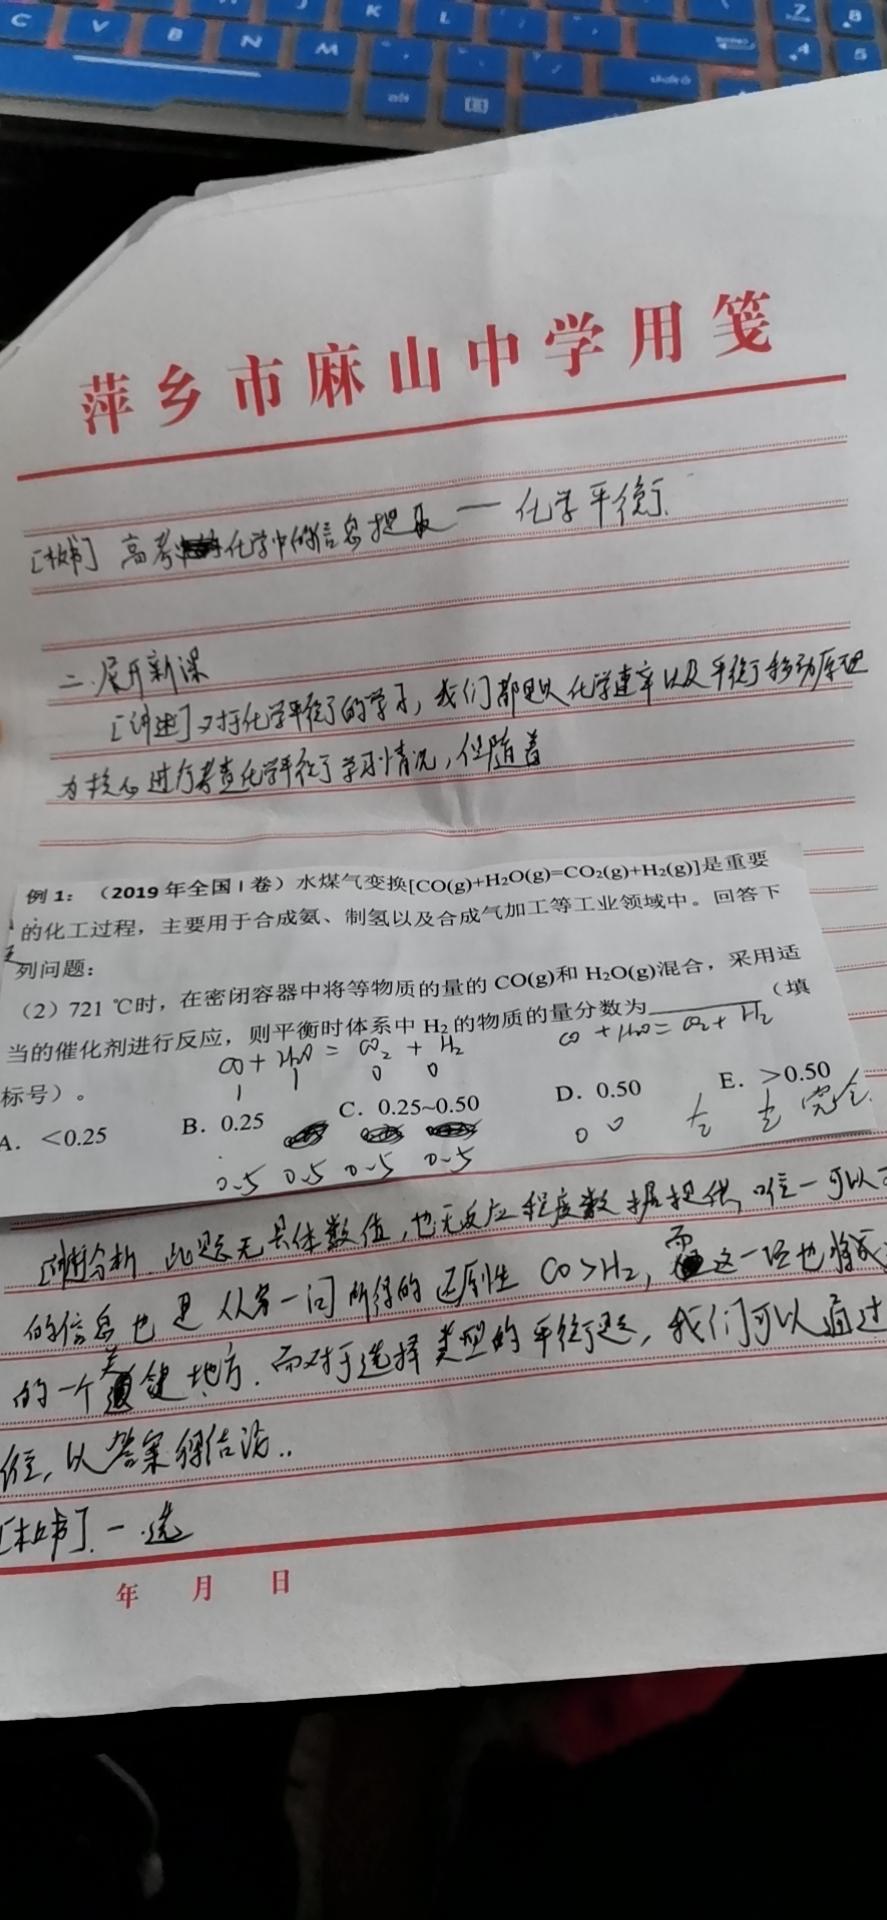 萍乡市麻山中学用笺
[板书] 高考化学中的信息提取 — 化学平衡
二.展开新课
[讲述] 对于化学平衡的学习,我们都是以化学速率以及平衡移动原理
为核心进行考查化学平衡学习情况,但随着
例1:(2019年全国I卷)水煤气变换[CO(g)+H2O(g)=CO2(g)+H2(g)]是重要
的化工过程,主要用于合成氨、制氢以及合成气加工等工业领域中。回答下
列问题:
(2)721 ℃时,在密闭容器中将等物质的量的CO(g)和H2O(g)混合,采用适
当的催化剂进行反应,则平衡时体系中H2的物质的量分数为________(填
标号)。
CO + H2O = CO2 + H2
CO + H2O = CO2 + H2
1 1 0 0
A.<0.25 B.0.25 C.0.25~0.50 D.0.50 E.>0.50
0.5 0.5 0.5 0.5
0 0 ½ ½ 完全
分析.此题无具体数值,也无反应程度数据提供,唯一可以
的信息也是从第一问所得的还原性 CO>H2,而这一信也将成
的一个关键地方.而对于选择类型的平衡题,我们可以通过
以答案得结论..
[板书].一.选
年 月 日